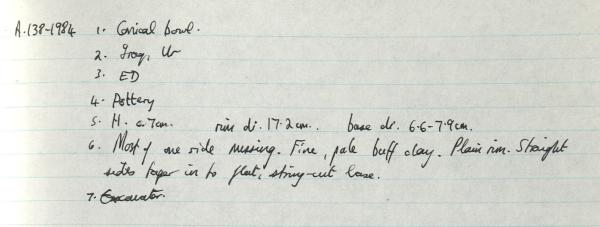 A.138-1984 1. Conical bowl.
2. Iraq, Ur
3. ED
4. Pottery
5. H. c.7cm. rim di. 17.2cm. base di. 6.6-7.9cm.
6. Most of one side missing. Fine, pale buff clay. Plain rim. Straight
sides taper in to flat, string-cut base.
7. Excavator.